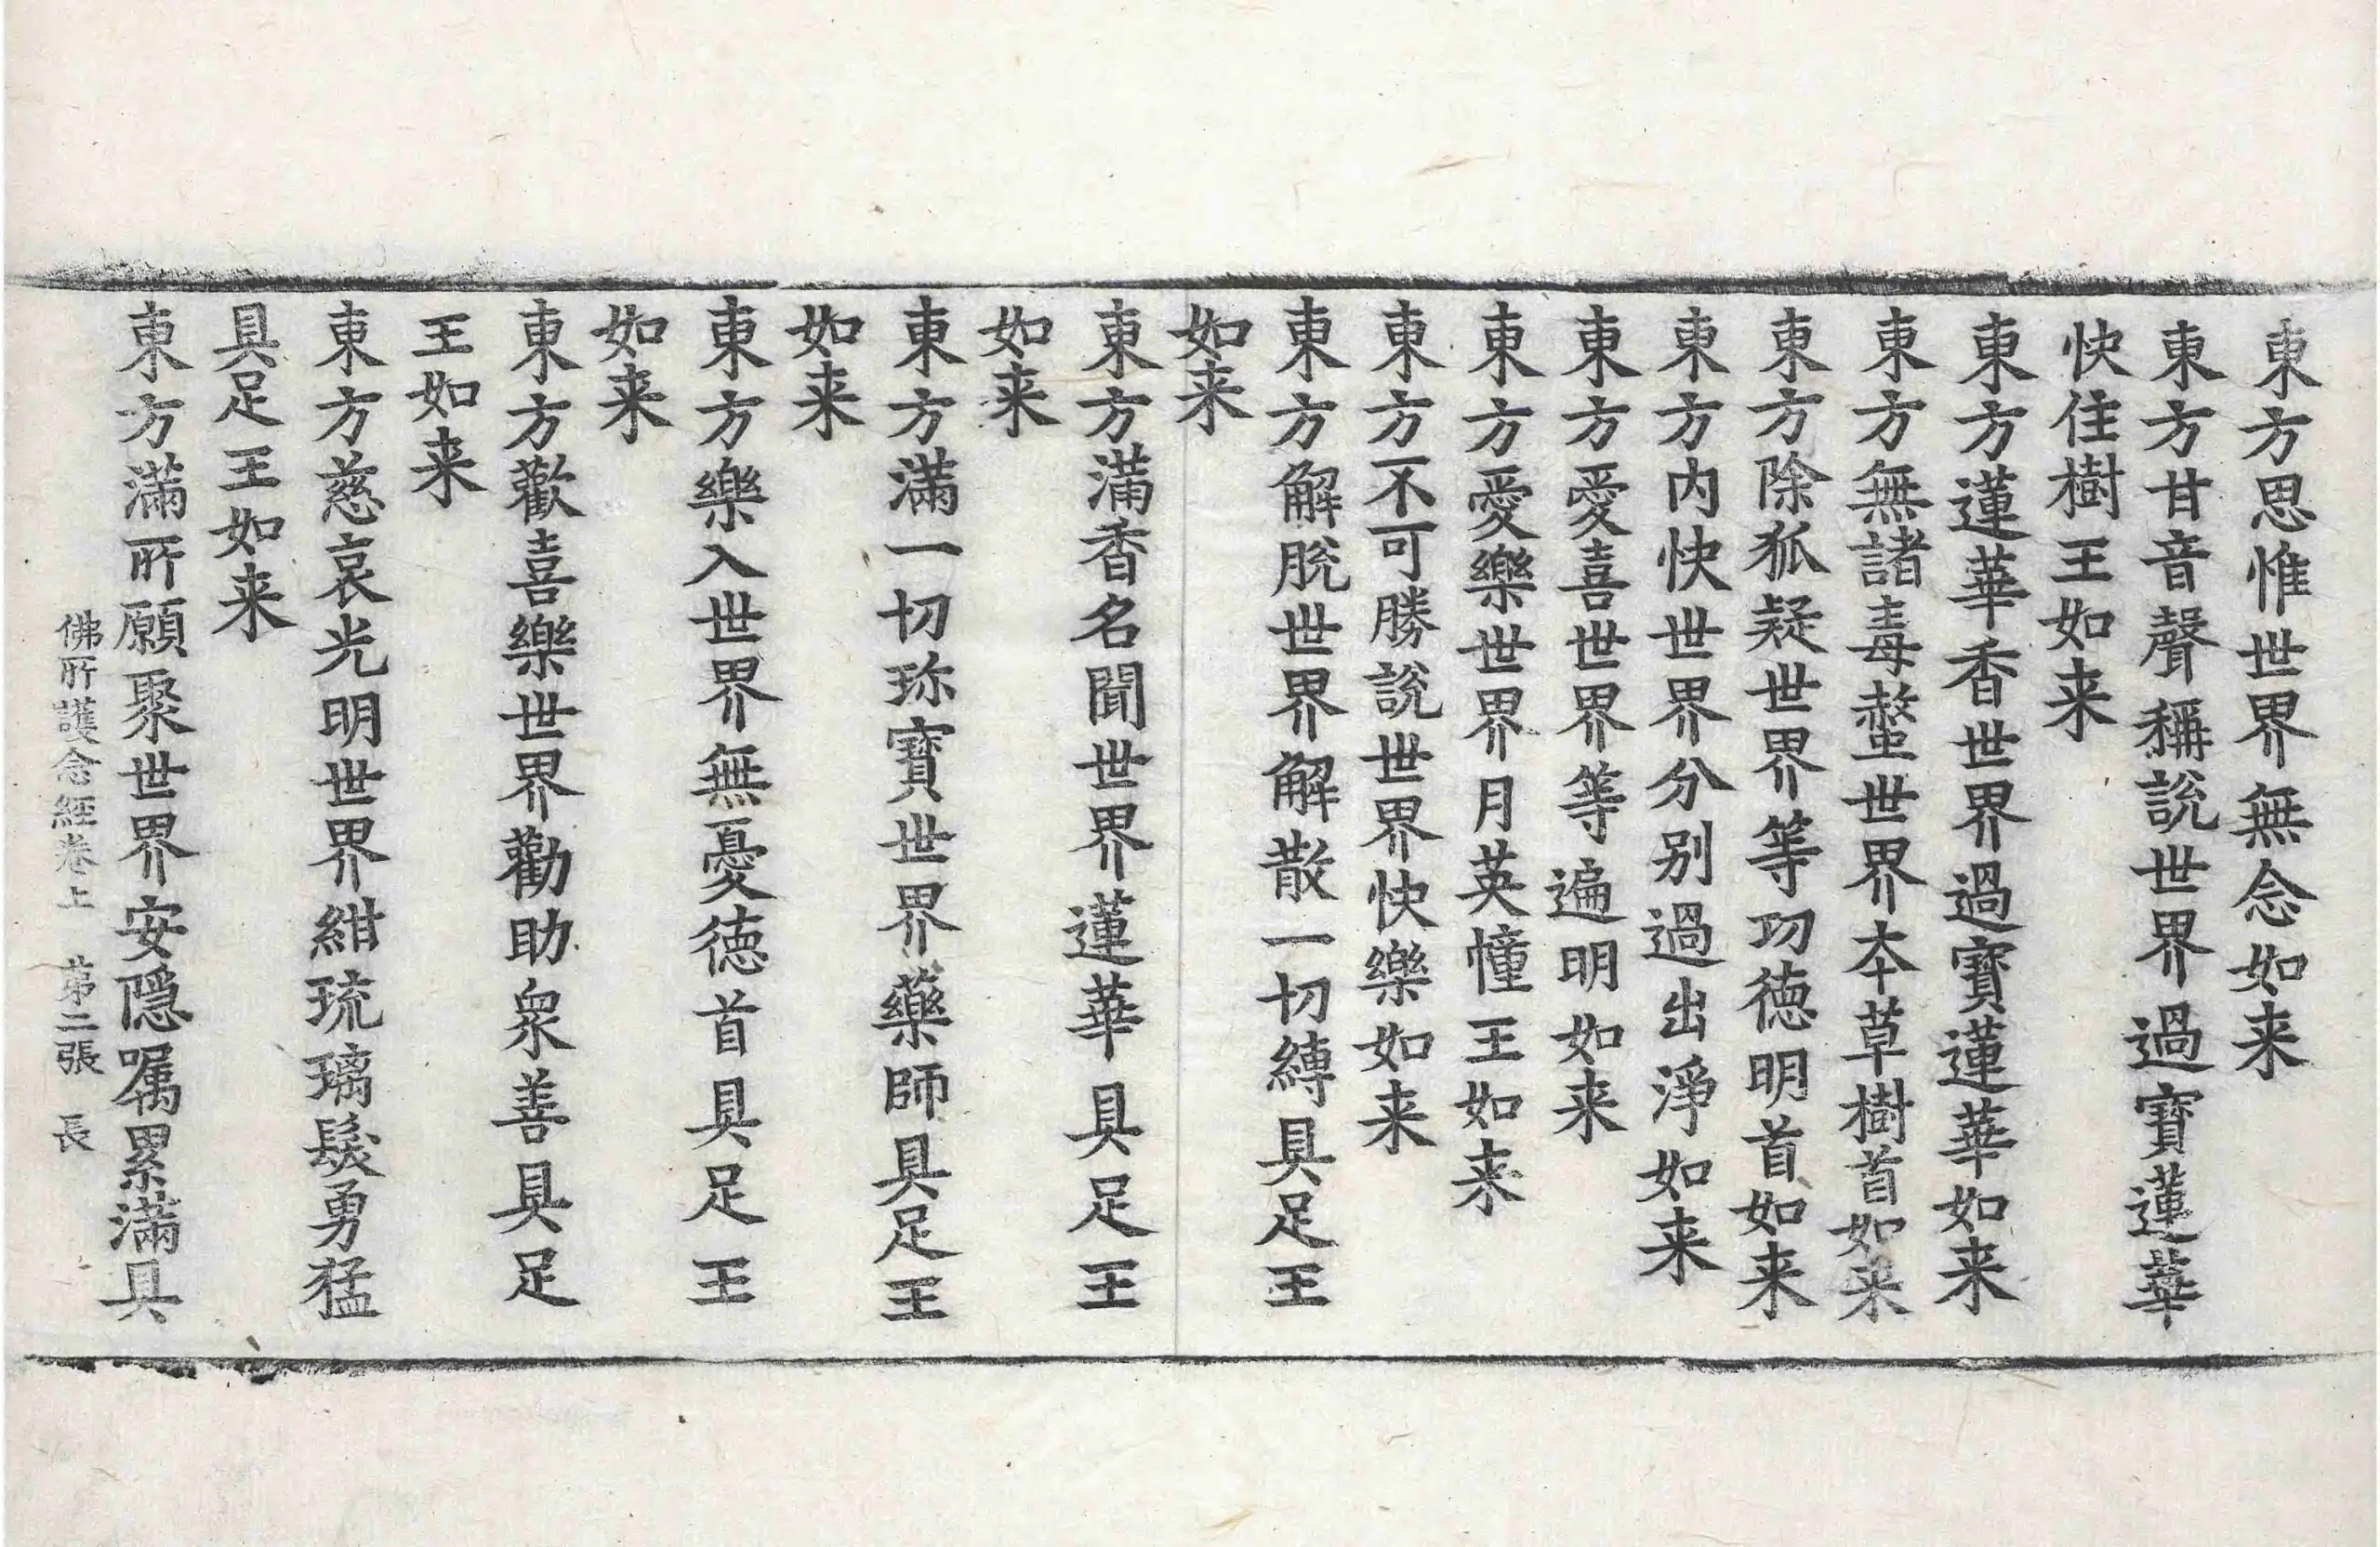 東方思惟世界無念如来
東方甘音聲稱說世界過寶蓮華
快住樹王如来
東方蓮華香世界過寶蓮華如来
東方無諸毒螫世界夲草樹首如来
東方除狐疑世界等功德明首如来
東方内快世界分别過出淨如来
東方愛喜世界等遍明如来
東方愛樂世界月英幢王如来
東方不可勝說世界快樂如来
東方解脫世界解散一切縛具足王
如来
東方滿香名聞世界蓮華具足王
如来
東方滿一切珎寶世界藥師具足王
如来
東方樂入世界無憂德首具足王
如来
東方歡喜樂世界勸助衆善具足
王如来
東方慈哀光明世界紺琉璃髮勇猛
具足王如来
東方滿所願聚世界安隱嘱累滿具
佛所護念經卷上 第二張 長